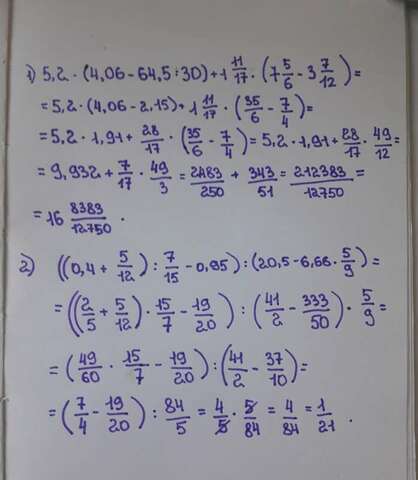 1) 5,2 · (4,06 - 64,5 : 30) + 1 11/17 · (7 5/6 - 3 7/12) =
= 5,2 · (4,06 - 2,15) + 1 11/17 · (35/6 - 7/4) =
= 5,2 · 1,91 + 28/17 · (35/6 - 7/4) = 5,2 · 1,91 + 28/17 · 49/12 =
= 9,932 + 7/17 · 49/3 = 2483/250 + 343/51 = 212383/12750 =
= 16 8383/12750 .
2) ((0,4 + 5/12) : 7/15 - 0,95) : (20,5 - 6,66 · 5/9) =
= ((2/5 + 5/12) · 15/7 - 19/20) : (41/2 - 333/50) · 5/9 =
= (49/60 · 15/7 - 19/20) : (41/2 - 37/10) =
= (7/4 - 19/20) : 84/5 = 4/5 · 5/84 = 4/84 = 1/21 .